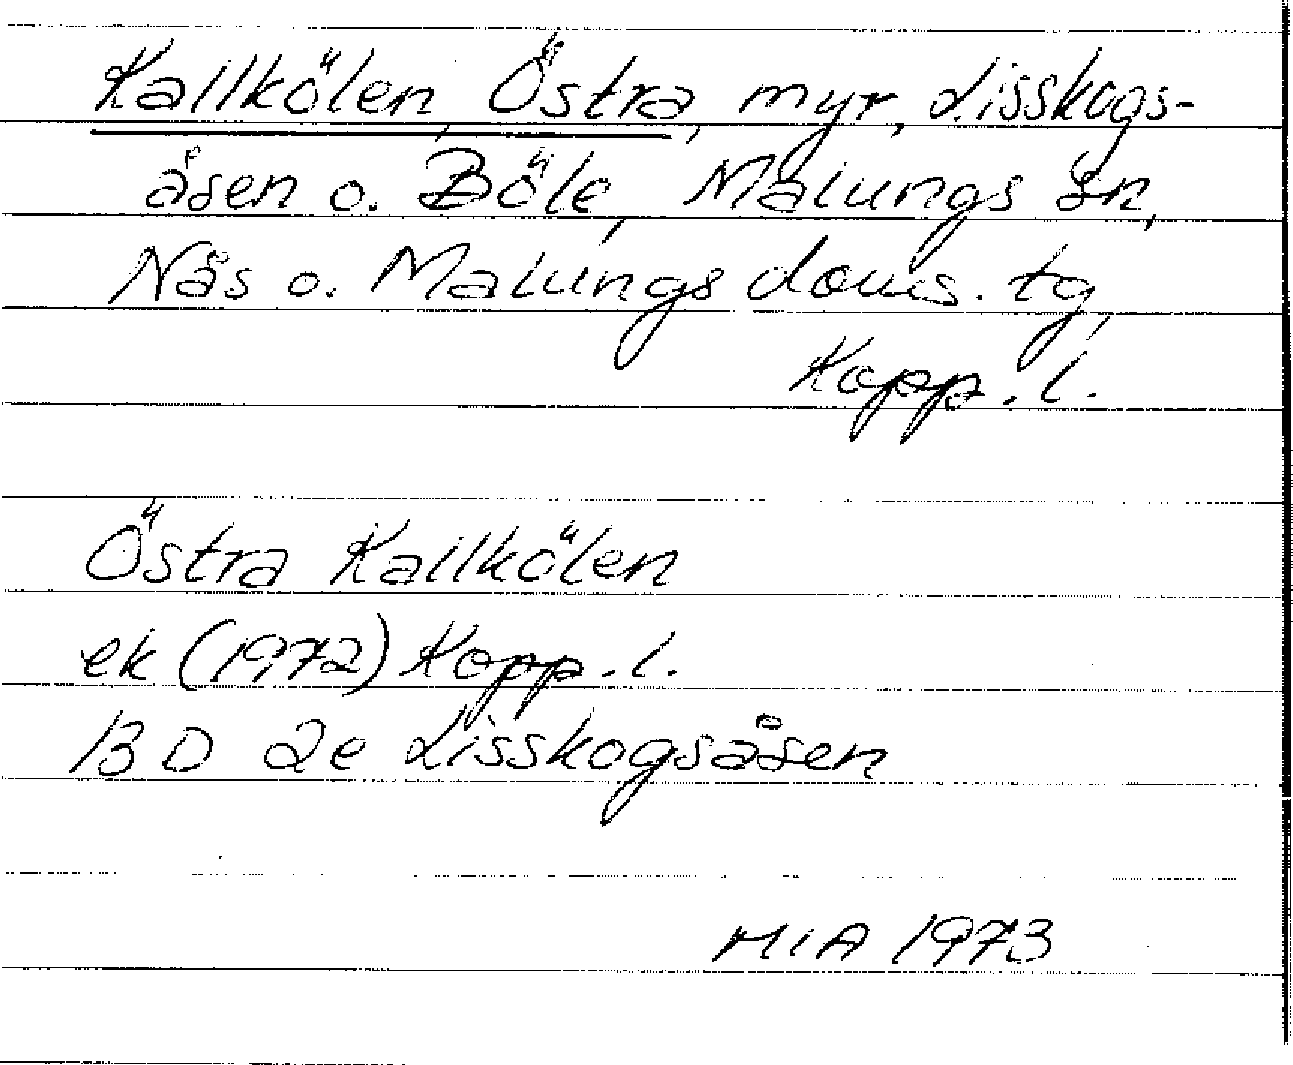 Kallkölen, Östra, myr, Lisskogs-
åsen o. Böle, Malungs sn,
Nås o. Malungs doms. tg,
Kopp. l.
Östra Kallkölen
ek (1972) Kopp. l.
13 D 2e Lisskogsåsen
MIA 1973